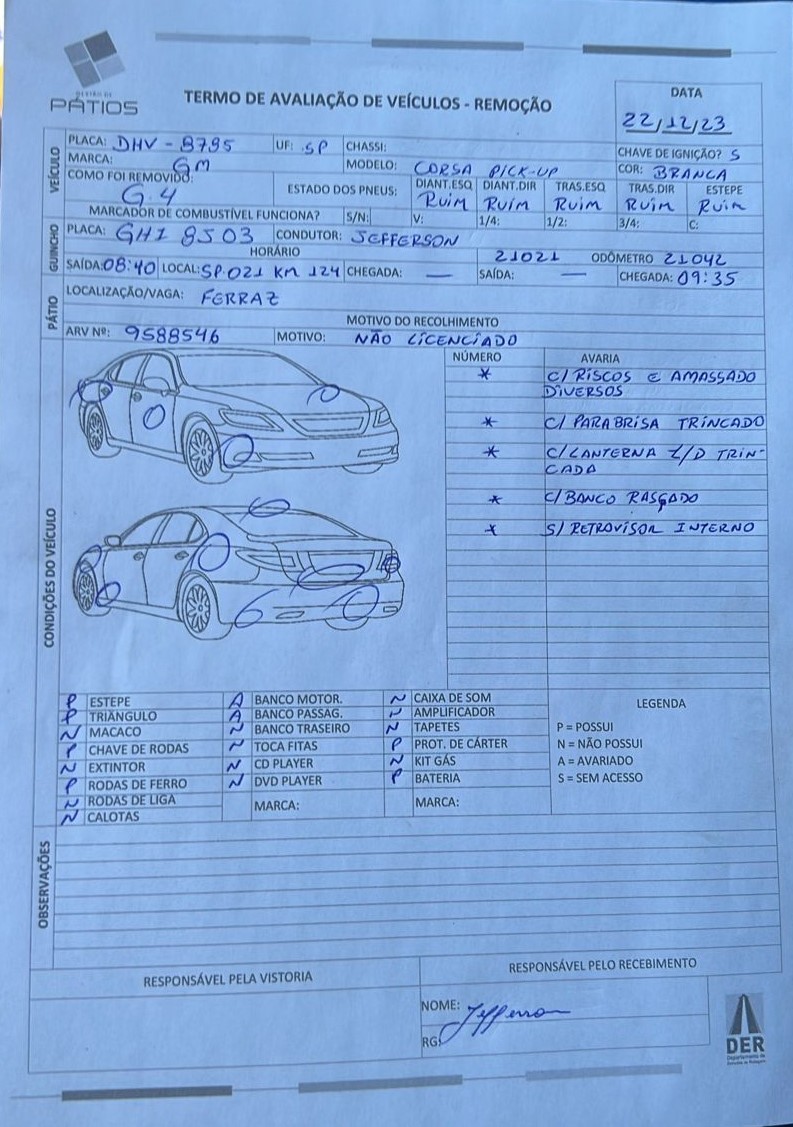 GESTÃO DE
PÁTIOS
TERMO DE AVALIAÇÃO DE VEÍCULOS - REMOÇÃO
DATA
22/12/23
VEÍCULO
PLACA: DHV - 8795 UF: SP CHASSI:
CHAVE DE IGNIÇÃO? S
MARCA: GM MODELO: CORSA PICK-UP COR: BRANCA
COMO FOI REMOVIDO: G.4 ESTADO DOS PNEUS: DIANT.ESQ DIANT.DIR TRAS.ESQ TRAS.DIR ESTEPE
RUIM RUIM RUIM RUIM RUIM
MARCADOR DE COMBUSTÍVEL FUNCIONA? S/N: V: 1/4: 1/2: 3/4: C:
GUINCHO
PLACA: GHI 8503 CONDUTOR: JEFFERSON
HORÁRIO 21021 ODÔMETRO 21042
SAÍDA: 08:40 LOCAL: SP.021 KM 124 CHEGADA: — SAÍDA: — CHEGADA: 09:35
PÁTIO
LOCALIZAÇÃO/VAGA: FERRAZ
MOTIVO DO RECOLHIMENTO
ARV Nº: 9588546 MOTIVO: NÃO LICENCIADO
CONDIÇÕES DO VEÍCULO
NÚMERO AVARIA
* C/ RISCOS E AMASSADO
DIVERSOS
* C/ PARABRISA TRINCADO
* C/ LANTERNA T/D TRIN-
CADA
* C/ BANCO RASGADO
* S/ RETROVISOR INTERNO
P ESTEPE A BANCO MOTOR. N CAIXA DE SOM
P TRIÂNGULO A BANCO PASSAG. N AMPLIFICADOR
N MACACO N BANCO TRASEIRO N TAPETES
P CHAVE DE RODAS N TOCA FITAS P PROT. DE CÁRTER
N EXTINTOR N CD PLAYER N KIT GÁS
P RODAS DE FERRO N DVD PLAYER P BATERIA
N RODAS DE LIGA MARCA: MARCA:
N CALOTAS
LEGENDA
P = POSSUI
N = NÃO POSSUI
A = AVARIADO
S = SEM ACESSO
OBSERVAÇÕES
RESPONSÁVEL PELA VISTORIA RESPONSÁVEL PELO RECEBIMENTO
NOME: Jefferson
RG:
DER